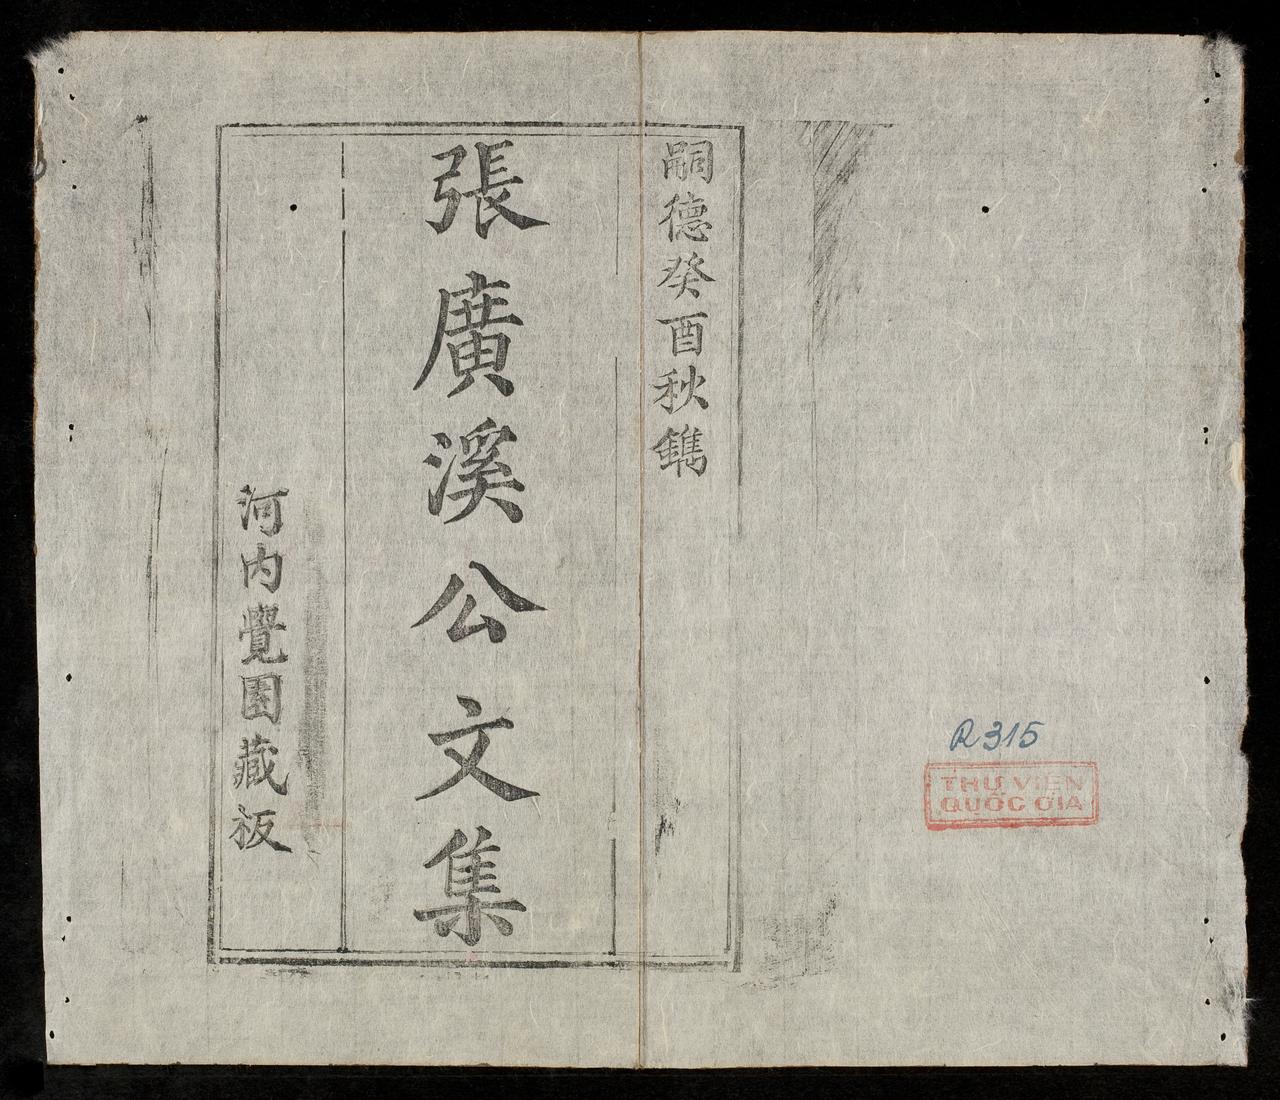 嗣德癸酉秋鐫
張廣溪公文集
河内覺園藏板
R315
THƯ VIỆN
QUỐC GIA